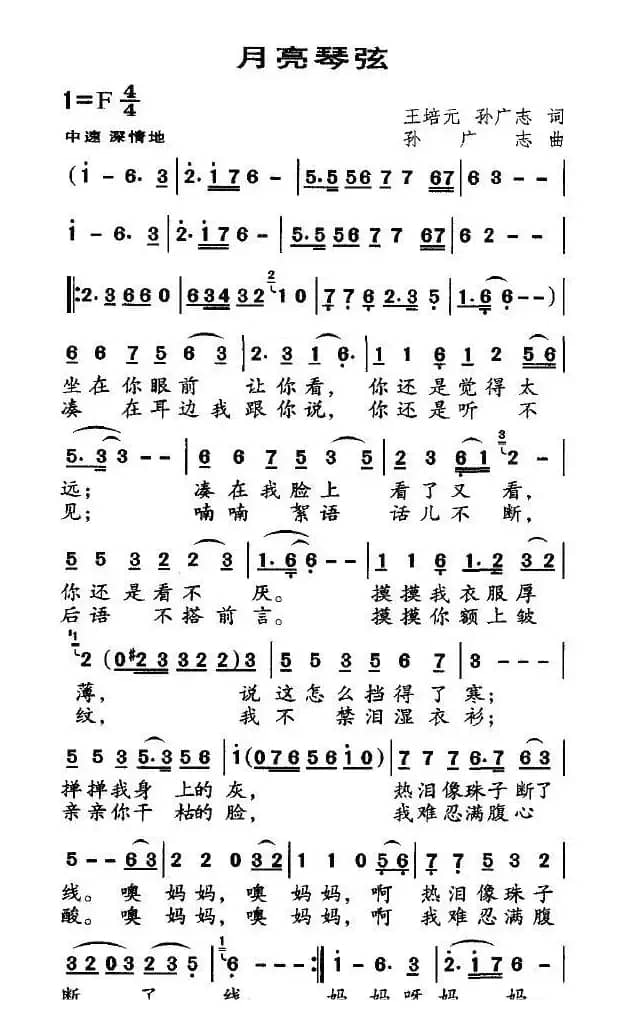 月亮琴弦
1=F 4/4
王培元 孙广志 词
中速 深情地
孙广志 曲
(i - 6. 3 | 2. i 7 6 - | 5. 5 5 6 7 7 6 7 | 6 3 - - |
i - 6. 3 | 2. i 7 6 - | 5. 5 5 6 7 7 6 7 | 6 2 - - |
|: 2. 3 6 6 0 | 6 3 4 3 2 2 1 0 | 7 7 6 2. 3 5 | 1. 6 6 - - ) |
6 6 7 5 6 3 | 2. 3 1 6. | 1 1 6 1 2 5 6 |
坐在你眼前 让你看, 你还是觉得太
凑 在耳边我跟你说, 你还是听 不
5. 3 3 - - | 6 6 7 5 3 5 | 2 3 2 6 1 3 2 - |
远; 凑在我脸上 看了又看,
见; 喃喃 絮语 话儿不断,
5 5 3 2 2 3 | 1. 6 6 - - | 1 1 6 1. 2 3 2 |
你还是看不 厌。 摸摸我衣服厚
后语 不搭前言。 摸摸你额上皱
1 2 (0 #2 3 3 2 2 2) 3 | 5 5 3 5 6 7 | 3 - - - |
薄, 说这怎么挡得了寒;
纹, 我不 禁泪湿衣衫;
5 5 3 5. 3 5 6 | i (0 7 6 5 6 i 0) | 7 7 7 6. 7 6 3 |
掸掸我身 上的灰, 热泪像珠子断了
亲亲你干 枯的脸, 我难忍满腹心
5 - - 6 3 | 2 2 0 3 2 | 1 1 0 5 6 | 7 7 5 3 3 |
线。噢 妈妈,噢 妈妈,啊 热泪像珠子
酸。噢 妈妈,噢 妈妈,啊 我难忍满腹
3 2 0 3 2 3 5 | 1 6 - - :| i - 6. 3 | 2. i 7 6 - |
断 了 线。 妈妈呀妈 妈